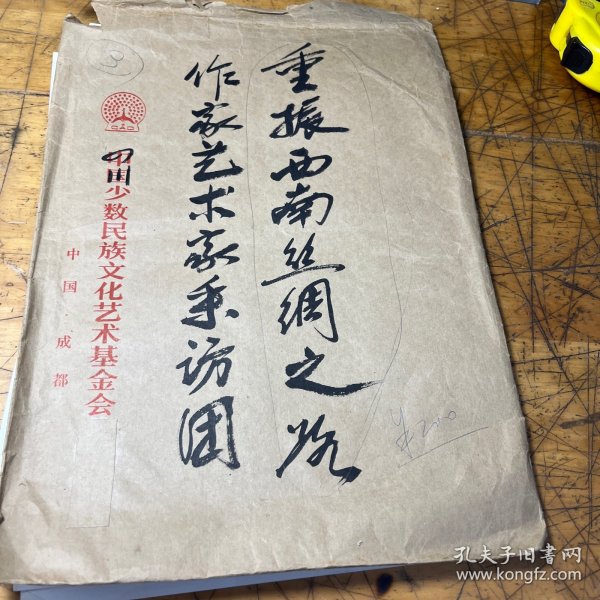 重振西南丝绸之路
作家艺术家采访团
③
四川少数民族文化艺术基金会
中国·成都
¥200
孔夫子旧书网
www.kongfz.com